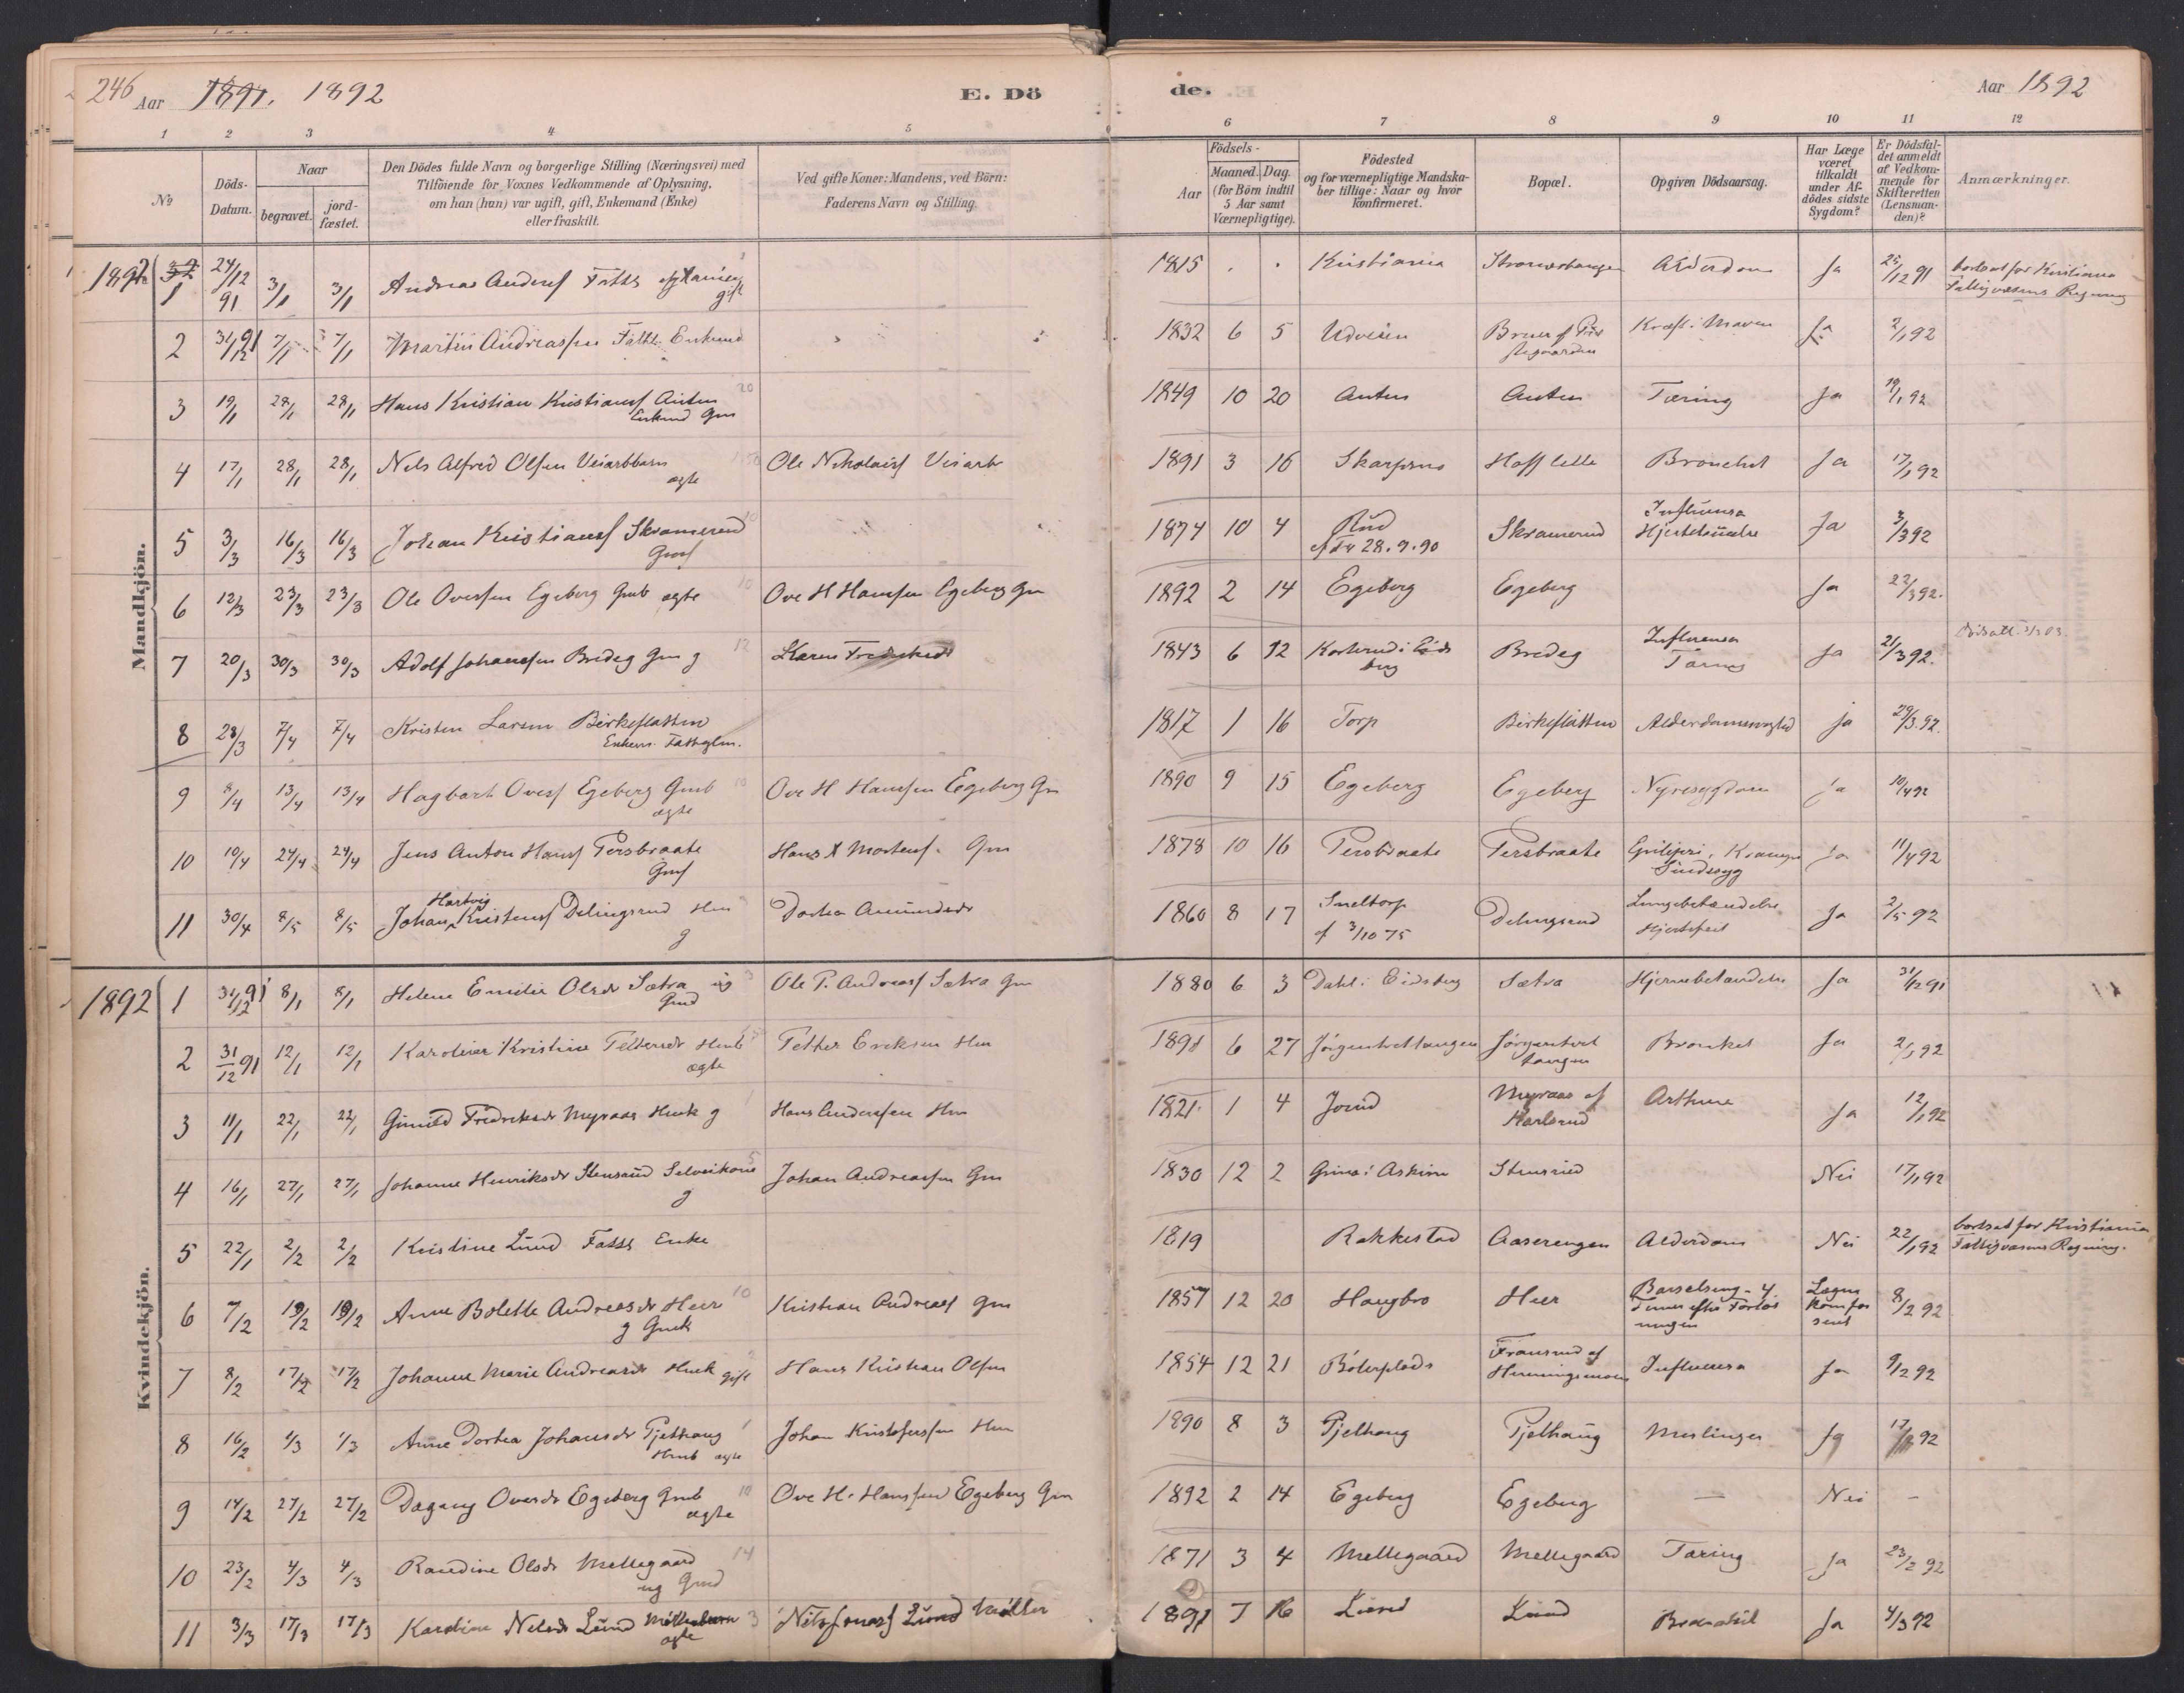 246 Aar 1891. 1892 E. Dö de. Aar 1892
1 2 3 4 5 6 7 8 9 10 11 12
No
Döds-Datum.
Naar
begravet. jordfæstet.
Den Dödes fulde Navn og borgerlige Stilling (Næringsvei) med
Tilföiende for Voxnes Vedkommende af Oplysning,
om han (hun) var ugift, gift, Enkemand (Enke)
eller fraskilt.
Ved gifte Koner: Mandens, ved Börn:
Faderens Navn og Stilling.
Födsels-
Aar
Maaned. Dag.
(for Börn indtil
5 Aar samt
Værnepligtige).
Födested
og for værnepligtige Mandska-
ber tillige: Naar og hvor
konfirmeret.
Bopæl.
Opgiven Dödsaarsag.
Har Læge
været
tilkaldt
under Af-
dödes sidste
Sygdom?
Er Dödsfal-
det anmeldt
af Vedkom-
mende for
Skifteretten
(Lensman-
den)?
Anmærkninger.
Mandkjön.
1892 32 1 24/12 91 3/1 3/1 Andreas Anders Fatts gift 1815 . . Kristiania Alderdom Ja 12 91 bortsat for Kristiania
Fattigvæsens Regning
2 31/12 91 7/1 7/1 Martin Andreassen Fatts Enkemd 1832 6 5 Udveien Kræft i Maven Ja 2/1 92
3 19/1 28/1 28/1 Hans Kristian Kristians Anten
Enkemd Gm 1849 10 20 Anten Anten Tæring Ja 19/1 92
4 17/1 28/1 28/1 Nils Alfred Olsen Veiarbbarn
ægte Ole Nikolais Veiarb 1891 3 16 Skarpsno Hoff lille Bronchit Ja 17/1 92
5 3/3 16/3 16/3 Johan Kristians Skramerud
Gms 1874 10 4 Rud
28.9.90 Skramerud Influensa
Hjertelammelse Ja 3/3 92
6 12/3 23/3 23/3 Ole Ovesen Egeberg Gmb ægte Ove H Hansen Egeberg Gm 1892 2 14 Egeberg Egeberg Ja 22/3 92.
7 20/3 30/3 30/3 Adolf Johansen Bredeg Gm g Karen Fredriksdr 1843 6 12 Bredeg Influensa
Tæring Ja 21/3 92.
8 28/3 7/4 7/4 Kristen Larsen Birkeflatten
Enkem. 1817 1 16 Torp Birkeflatten ja 29/3.92.
9 8/4 13/4 13/4 Hagbart Oves Egeberg Gmb
ægte Ove H Hansen Egeberg Gm 1890 9 15 Egeberg Egeberg Nyresygdom ja 10/4 92
10 10/4 24/4 24/4 Jens Anton Hans Persbraate
Gms Hans A Mortens. Gm 1878 10 16 Persbraate Persbraate Sindssyg ja 11/4 92
11 30/4 8/5 8/5 Johan Hartvig Kristens Delingsrud Hm
g Dortea Amundsdr 1860 8 17 Sneltorp
3/10 75 Delingsrud Lungebetændelse
Hjertefeil Ja 2/5 92
Kvindekjön.
1892 1 31/12 91 8/1 8/1 Helene Emilie Olsdr Sætra ug
Gmd Ole P. Andreas Sætra Gm 1880 6 3 Dahl i Eidsberg Sætra Hjernebetændelse Ja 31/12 91
2 31/12 91 12/1 12/1 Karoline Kristine Pettersdr Hmb
ægte Petter Eriksen Hm 1891 6 27 Jørgentvettangen Jørgentvet
tangen Bronkit Ja 2/1 92
3 11/1 22/1 22/1 Gunild Fredriksdr Myraas Hmk g Hans Andersen Hm 1821 1 4 Jorud Myraas af
Karlsrud Ja 12/1 92
4 16/1 27/1 27/1 Johanne Henriksdr Stensrud Selveikone
g Johan Andreassen Gm 1830 12 2 i Askim Stensrud Nei 17/1 92
5 22/1 2/2 2/2 Kristine Lund Fatts Enke 1819 Rakkestad Aaserengen Alderdom Nei 22/1 92 bortsat for Kristiania
Fattigvæsens Regning.
6 7/2 19/2 19/2 Anne Bolette Andreasdr Heer
g Gmk Kristian Andreas Gm 1857 12 20 Haugbro Heer Barselseng - 4
Timer efter Forløs
ningen Lægen
kom for
sent 8/2 92
7 8/2 17/2 17/2 Johanne Marie Andreasdr Hmk gift Hans Kristian Olsen 1854 12 21 Fransrud af
Henningsmoen Influensa Ja 9/2 92
8 16/2 1/3 1/3 Anne Dortea Johansdr Pjelthaug
Hmb ægte Johan Kristofersen Hm 1890 8 3 Pjelthaug Pjelthaug Meslinger Ja 17/2 92
9 14/2 27/2 27/2 Dagny Ovesdr Egeberg Gmb
ægte Ove H. Hansen Egeberg Gm 1892 2 14 Egeberg Egeberg — Nei -
10 23/2 4/3 4/3 Randine Olsdr Mellegaard
ug Gmd 1871 3 4 Mellegaard Mellegaard Tæring Ja 23/2 92
11 3/3 17/3 17/3 Karoline Nilsdr Lund Møllerbarn
ægte Lund Møller 1891 7 16 Lund Lund Ja 4/3 92